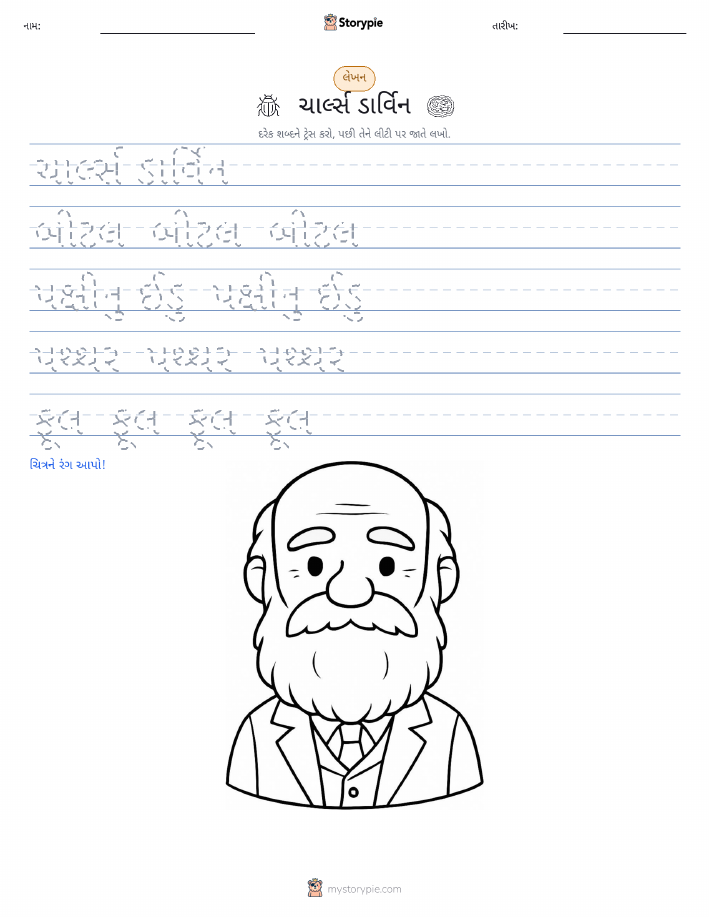 નામ:
Storypie
તારીખ:
લેખન
ચાર્લ્સ ડાર્વિન
દરેક શબ્દને ટ્રેસ કરો, પછી તેને લીટી પર જાતે લખો.
ચાર્લ્સ ડાર્વિન
બીટલ બીટલ બીટલ
પક્ષીનુ ઈડુ પક્ષીનુ ઈડુ
પથ્થર પથ્થર પથ્થર
ફૂલ ફૂલ ફૂલ ફૂલ
ચિત્રને રંગ આપો!
mystorypie.com